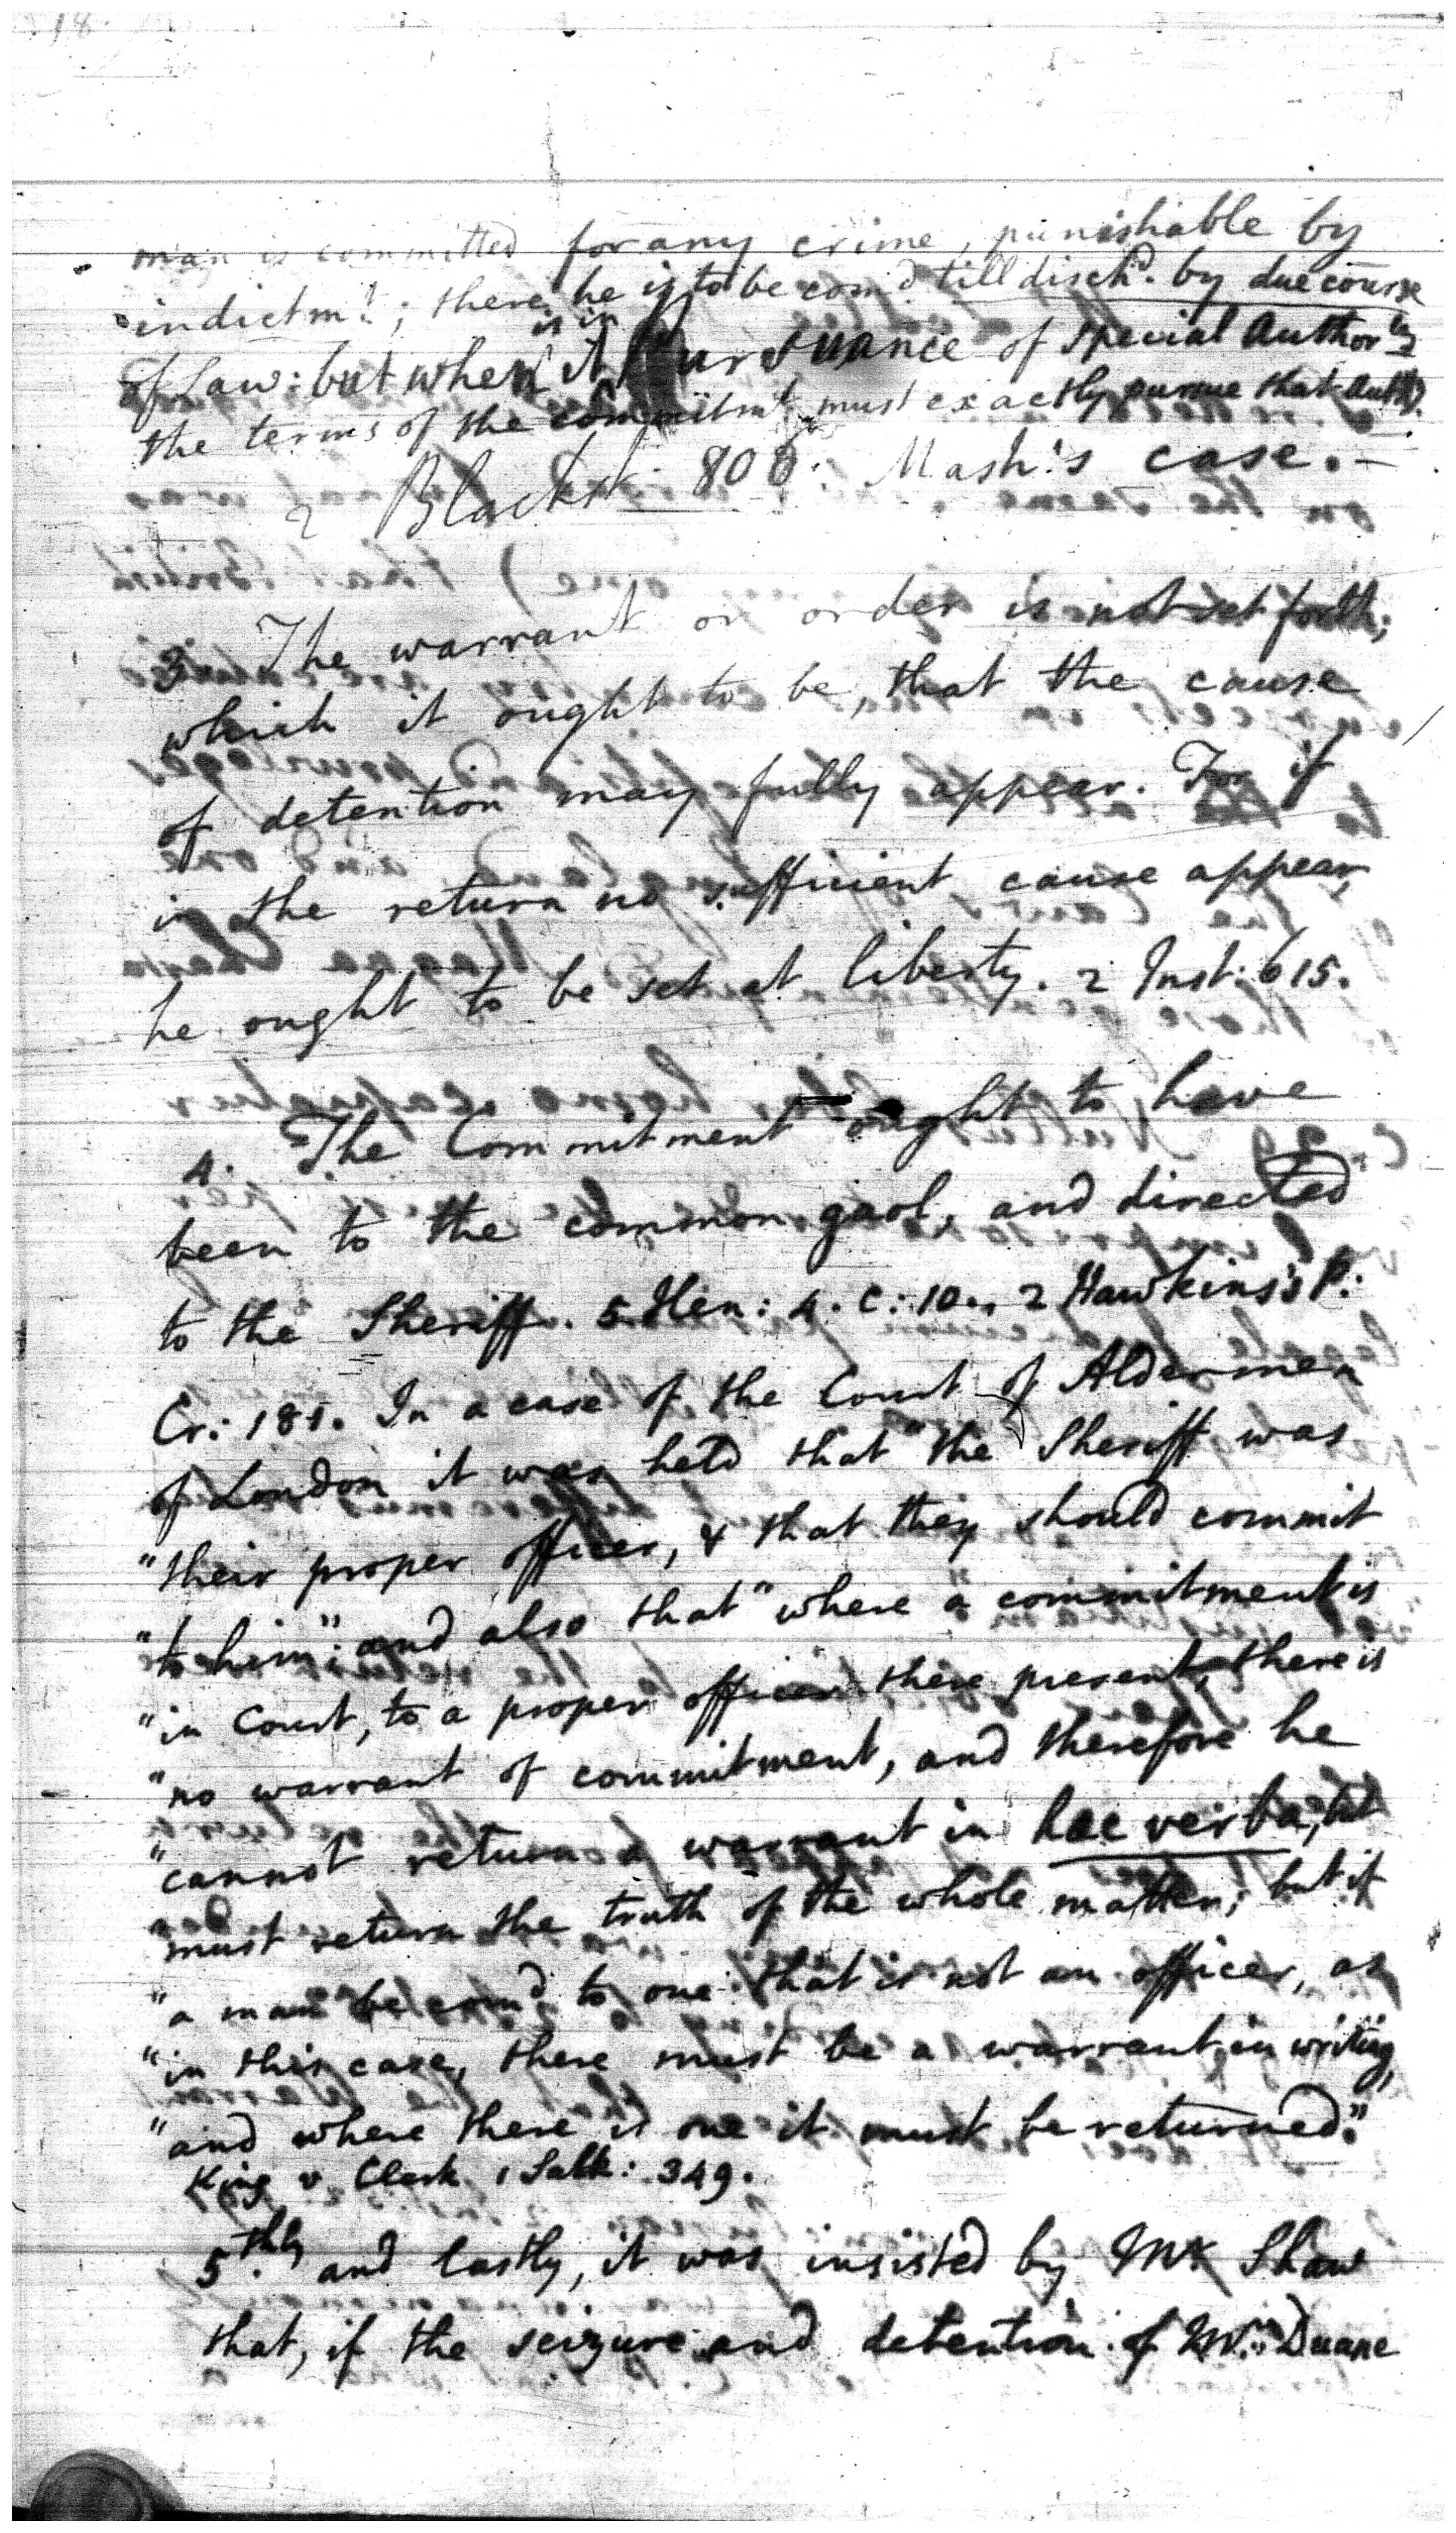 18
man is committed for any crime, punishable by
indictmt; there he is to be com'd till disch'd. by due course
of Law: but when it is in pursuance of special Authorty
the terms of the commitmt must exactly pursue that Authy.
2 Blackst. 806. Mash's case. —
3 The warrant or order is not set forth;
which it ought to be, that the cause
of detention may fully appear. For if
in the return no sufficient cause appear,
he ought to be set at liberty. 2 Inst: 615.
4. The Commitment ought to have
been to the common gaol, and directed
to the Sheriff. 5 Hen: 4. c: 10., 2 Hawkins's P:
Cr: 181. In a case of the Court of Aldermen
of London it was held that "the Sheriff was
"their proper officer, & that they should commit
"to him": and also that "where a commitment is
"in Court, to a proper officer there present, there is
"no warrant of commitment, and therefore he
"cannot return a warrant in hæc verba, but
"must return the truth of the whole matter; but if
"a man be com'd to one that is not an officer, as
"in this case, there must be a warrant in writing,
"and where there is one it must be returned."
King v Clerk 1 Salk: 349.
5.thly and lastly, it was insisted by Mr Shaw
that, if the seizure and detention of Mr. Duane